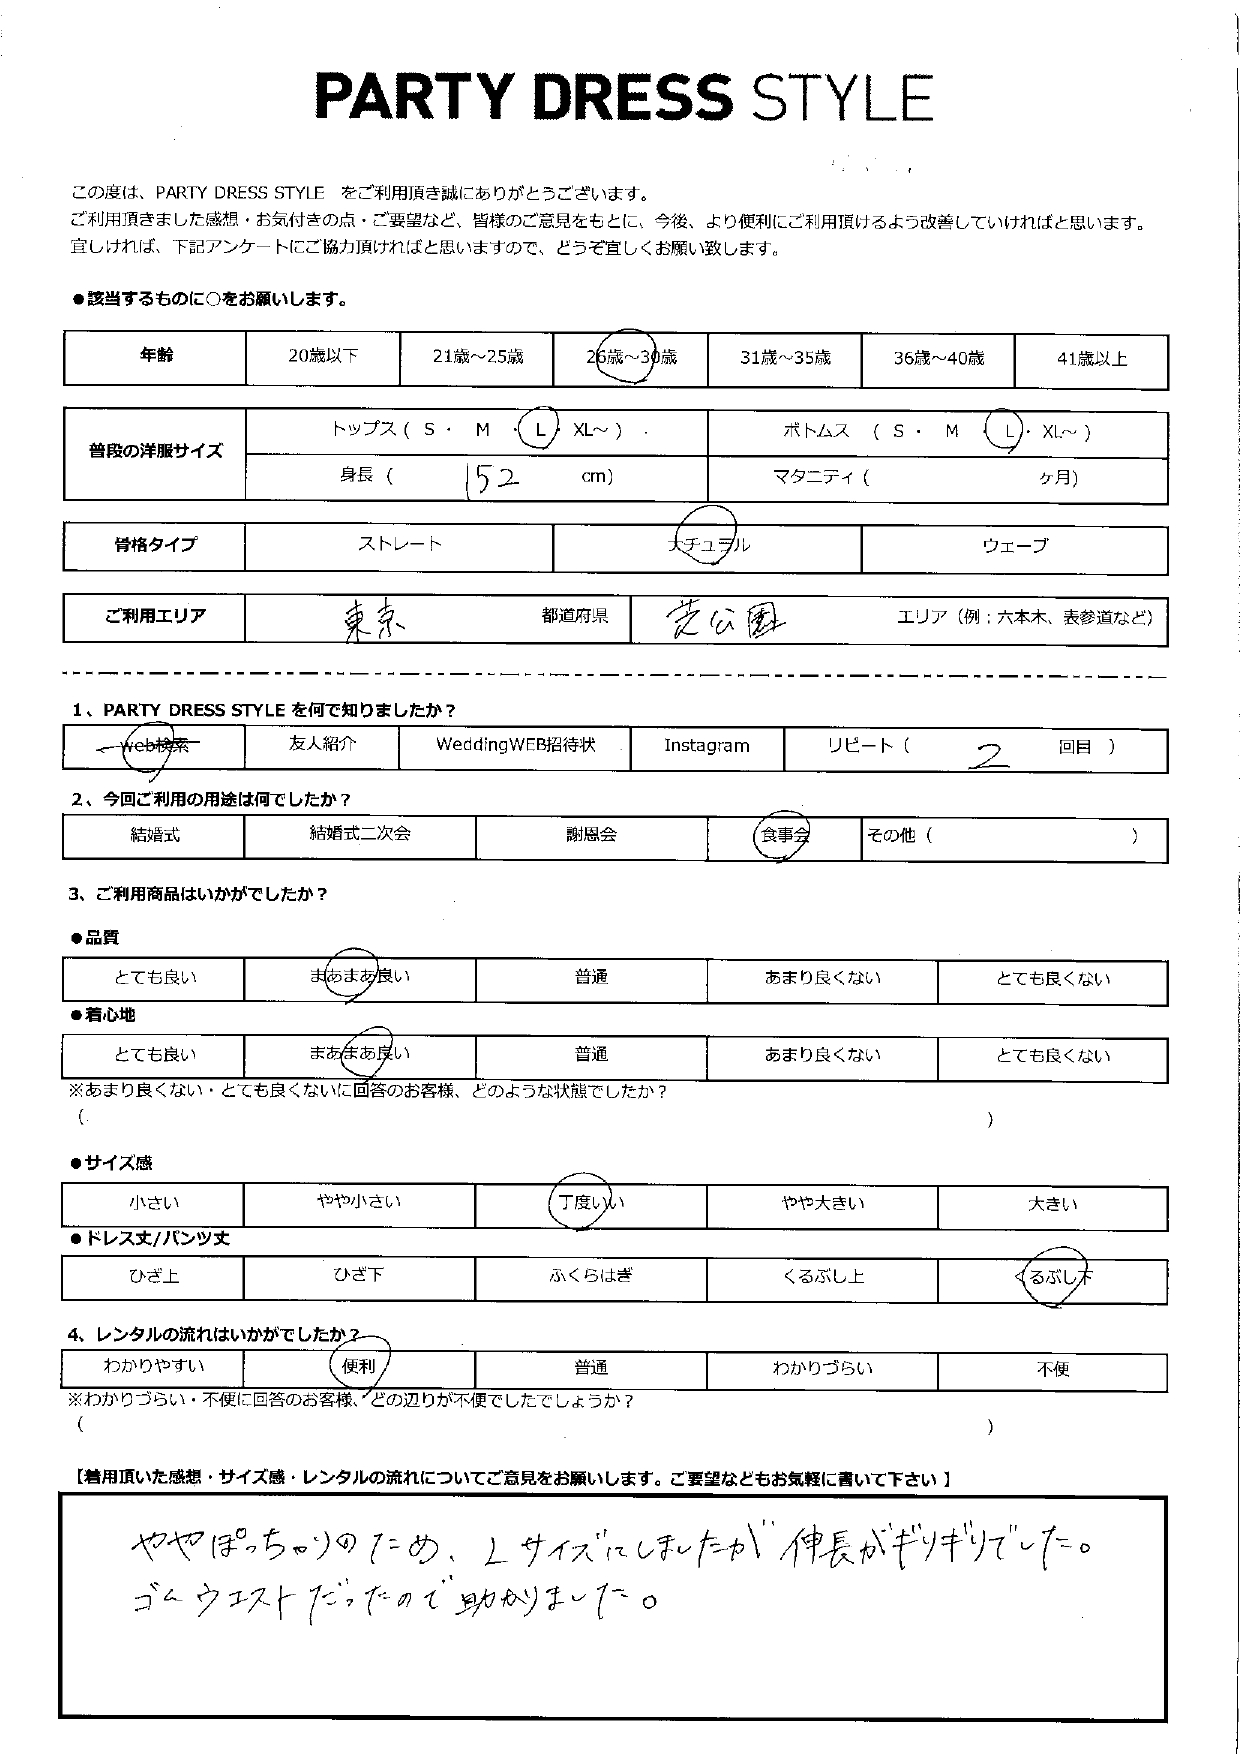 PARTY DRESS STYLE
この度は、PARTY DRESS STYLE をご利用頂き誠にありがとうございます。
ご利用頂きました感想・お気付きの点・ご要望など、皆様のご意見をもとに、今後、より便利にご利用頂けるよう改善していければと思います。
宜しければ、下記アンケートにご協力頂ければと思いますので、どうぞ宜しくお願い致します。
●該当するものに○をお願いします。
年齢 20歳以下 21歳～25歳 26歳～30歳 31歳～35歳 36歳～40歳 41歳以上
普段の洋服サイズ トップス ( S ・ M ・ L ・ XL～ ) ボトムス ( S ・ M ・ L ・ XL～ )
身長 ( 152 cm) マタニティ ( ヶ月)
骨格タイプ ストレート ナチュラル ウェーブ
ご利用エリア 東京 都道府県 芝公園 エリア（例：六本木、表参道など）
1、PARTY DRESS STYLE を何で知りましたか？
web検索 友人紹介 WeddingWEB招待状 Instagram リピート ( 2 回目 )
2、今回ご利用の用途は何でしたか？
結婚式 結婚式二次会 謝恩会 食事会 その他 ( )
3、ご利用商品はいかがでしたか？
●品質
とても良い まあまあ良い 普通 あまり良くない とても良くない
●着心地
とても良い まあまあ良い 普通 あまり良くない とても良くない
※あまり良くない・とても良くないに回答のお客様、どのような状態でしたか？
( )
●サイズ感
小さい やや小さい 丁度いい やや大きい 大きい
●ドレス丈/パンツ丈
ひざ上 ひざ下 ふくらはぎ くるぶし上 くるぶし下
4、レンタルの流れはいかがでしたか？
わかりやすい 便利 普通 わかりづらい 不便
※わかりづらい・不便に回答のお客様、どの辺りが不便でしたでしょうか？
( )
【着用頂いた感想・サイズ感・レンタルの流れについてご意見をお願いします。ご要望などもお気軽に書いて下さい】
ややぽっちゃりのため、Lサイズにしましたが伸長がギリギリでした。
ゴムウエストだったので助かりました。